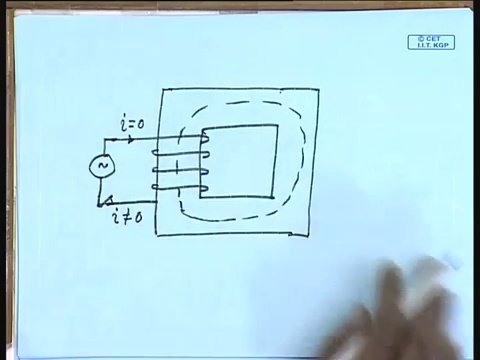 © CET
I.I.T. KGP
i=0
~
i≠0